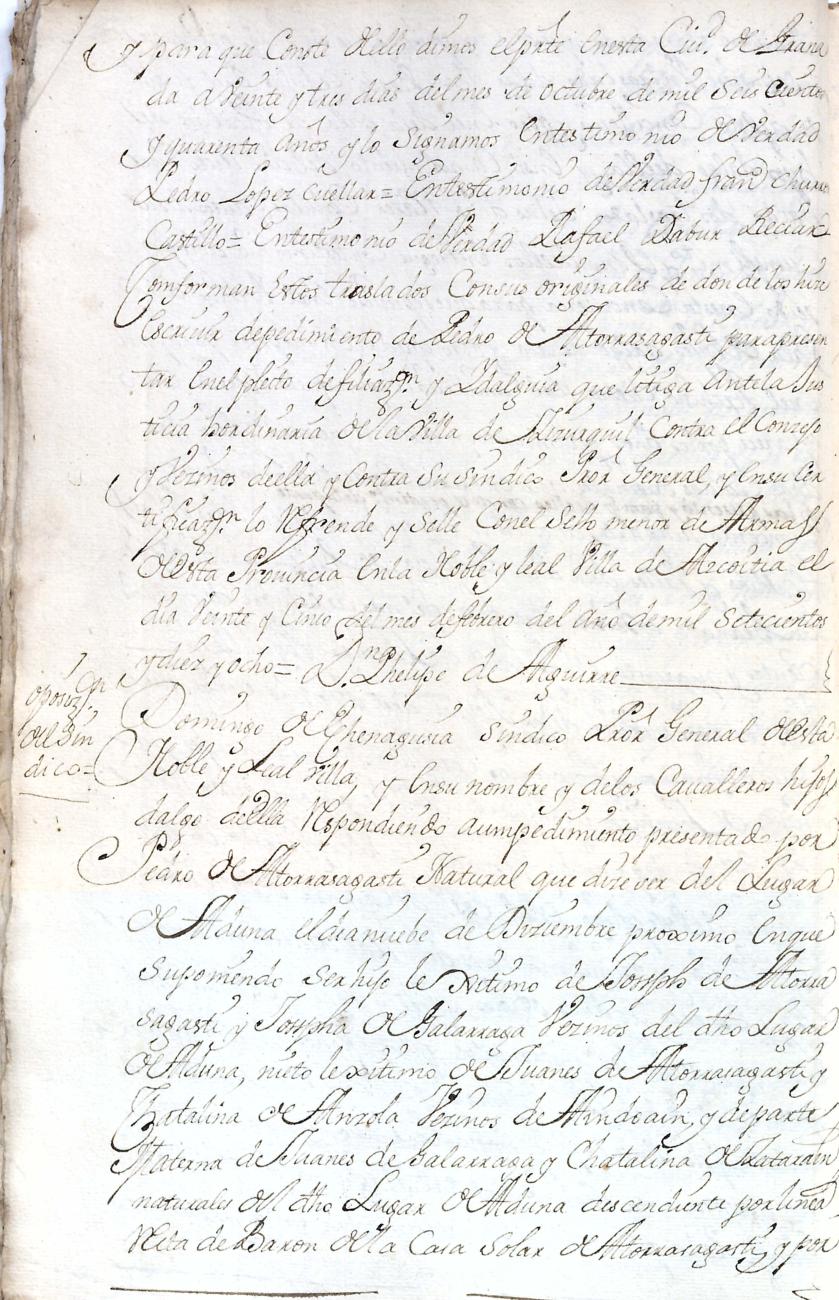 y para que Conste dello dimos el pr.te En esta Ciu.d de Grana
da a Veinte y tres dias del mes de octubre de mil Seis Cientos
y quarenta años y lo Signamos En testimonio de Verdad
Pedro Lopez Cuellar = En testimonio de Verdad fran.co
Castillo = En testimonio de Verdad Rafael
Comforman Estos traslados Con sus originales de donde los hize
Escriuir de pedimiento de Pedro de Attorrasagasti para presen
tar En el pleito de filiaz.on y Ydalguia que litiga Ante la Jus
ticia hordinaria de la Villa de Aizurquil Contra el Conzejo
y Vezinos de ella y Contra Su Sindico Pror General, y En su Cer
tificaz.on lo Refrende y Selle Con el Sello menor de Armas
de esta Provincia En la Noble y leal Villa de Azcoitia el
dia Veinte y Cinco del mes de febrero del año de mil Setecientos
y diez y ocho = D.n Phelipe de Aguirre
oposiz.on
del Sin
dico =
Domingo de Echenagusia Sindico Pror General de esta
Noble y Leal Villa, y En su nombre y de los Cavalleros hijos
dalgo de ella Respondiendo a un pedimiento presentado por
Pedro de Attorrasagasti Natural que dize ser del Lugar
de Alduna el dia nuebe de Diziembre proximo En que
Suponiendo Ser hijo lexitimo de Joseph de Attorra
sagasti y Josepha de Galarraga Vezinos del dho Lugar
de Alduna, nieto lexitimo de Juanes de Attorrasagasti y
Chatalina de Anzola Vezinos de Aindoain, y de parte
Materna de Juanes de Galarraga y Chatalina de Zatarain
naturales del dho Lugar de Alduna descendiente por linea
Recta de Baron de la Casa Solar de Attorrasagasti, y por